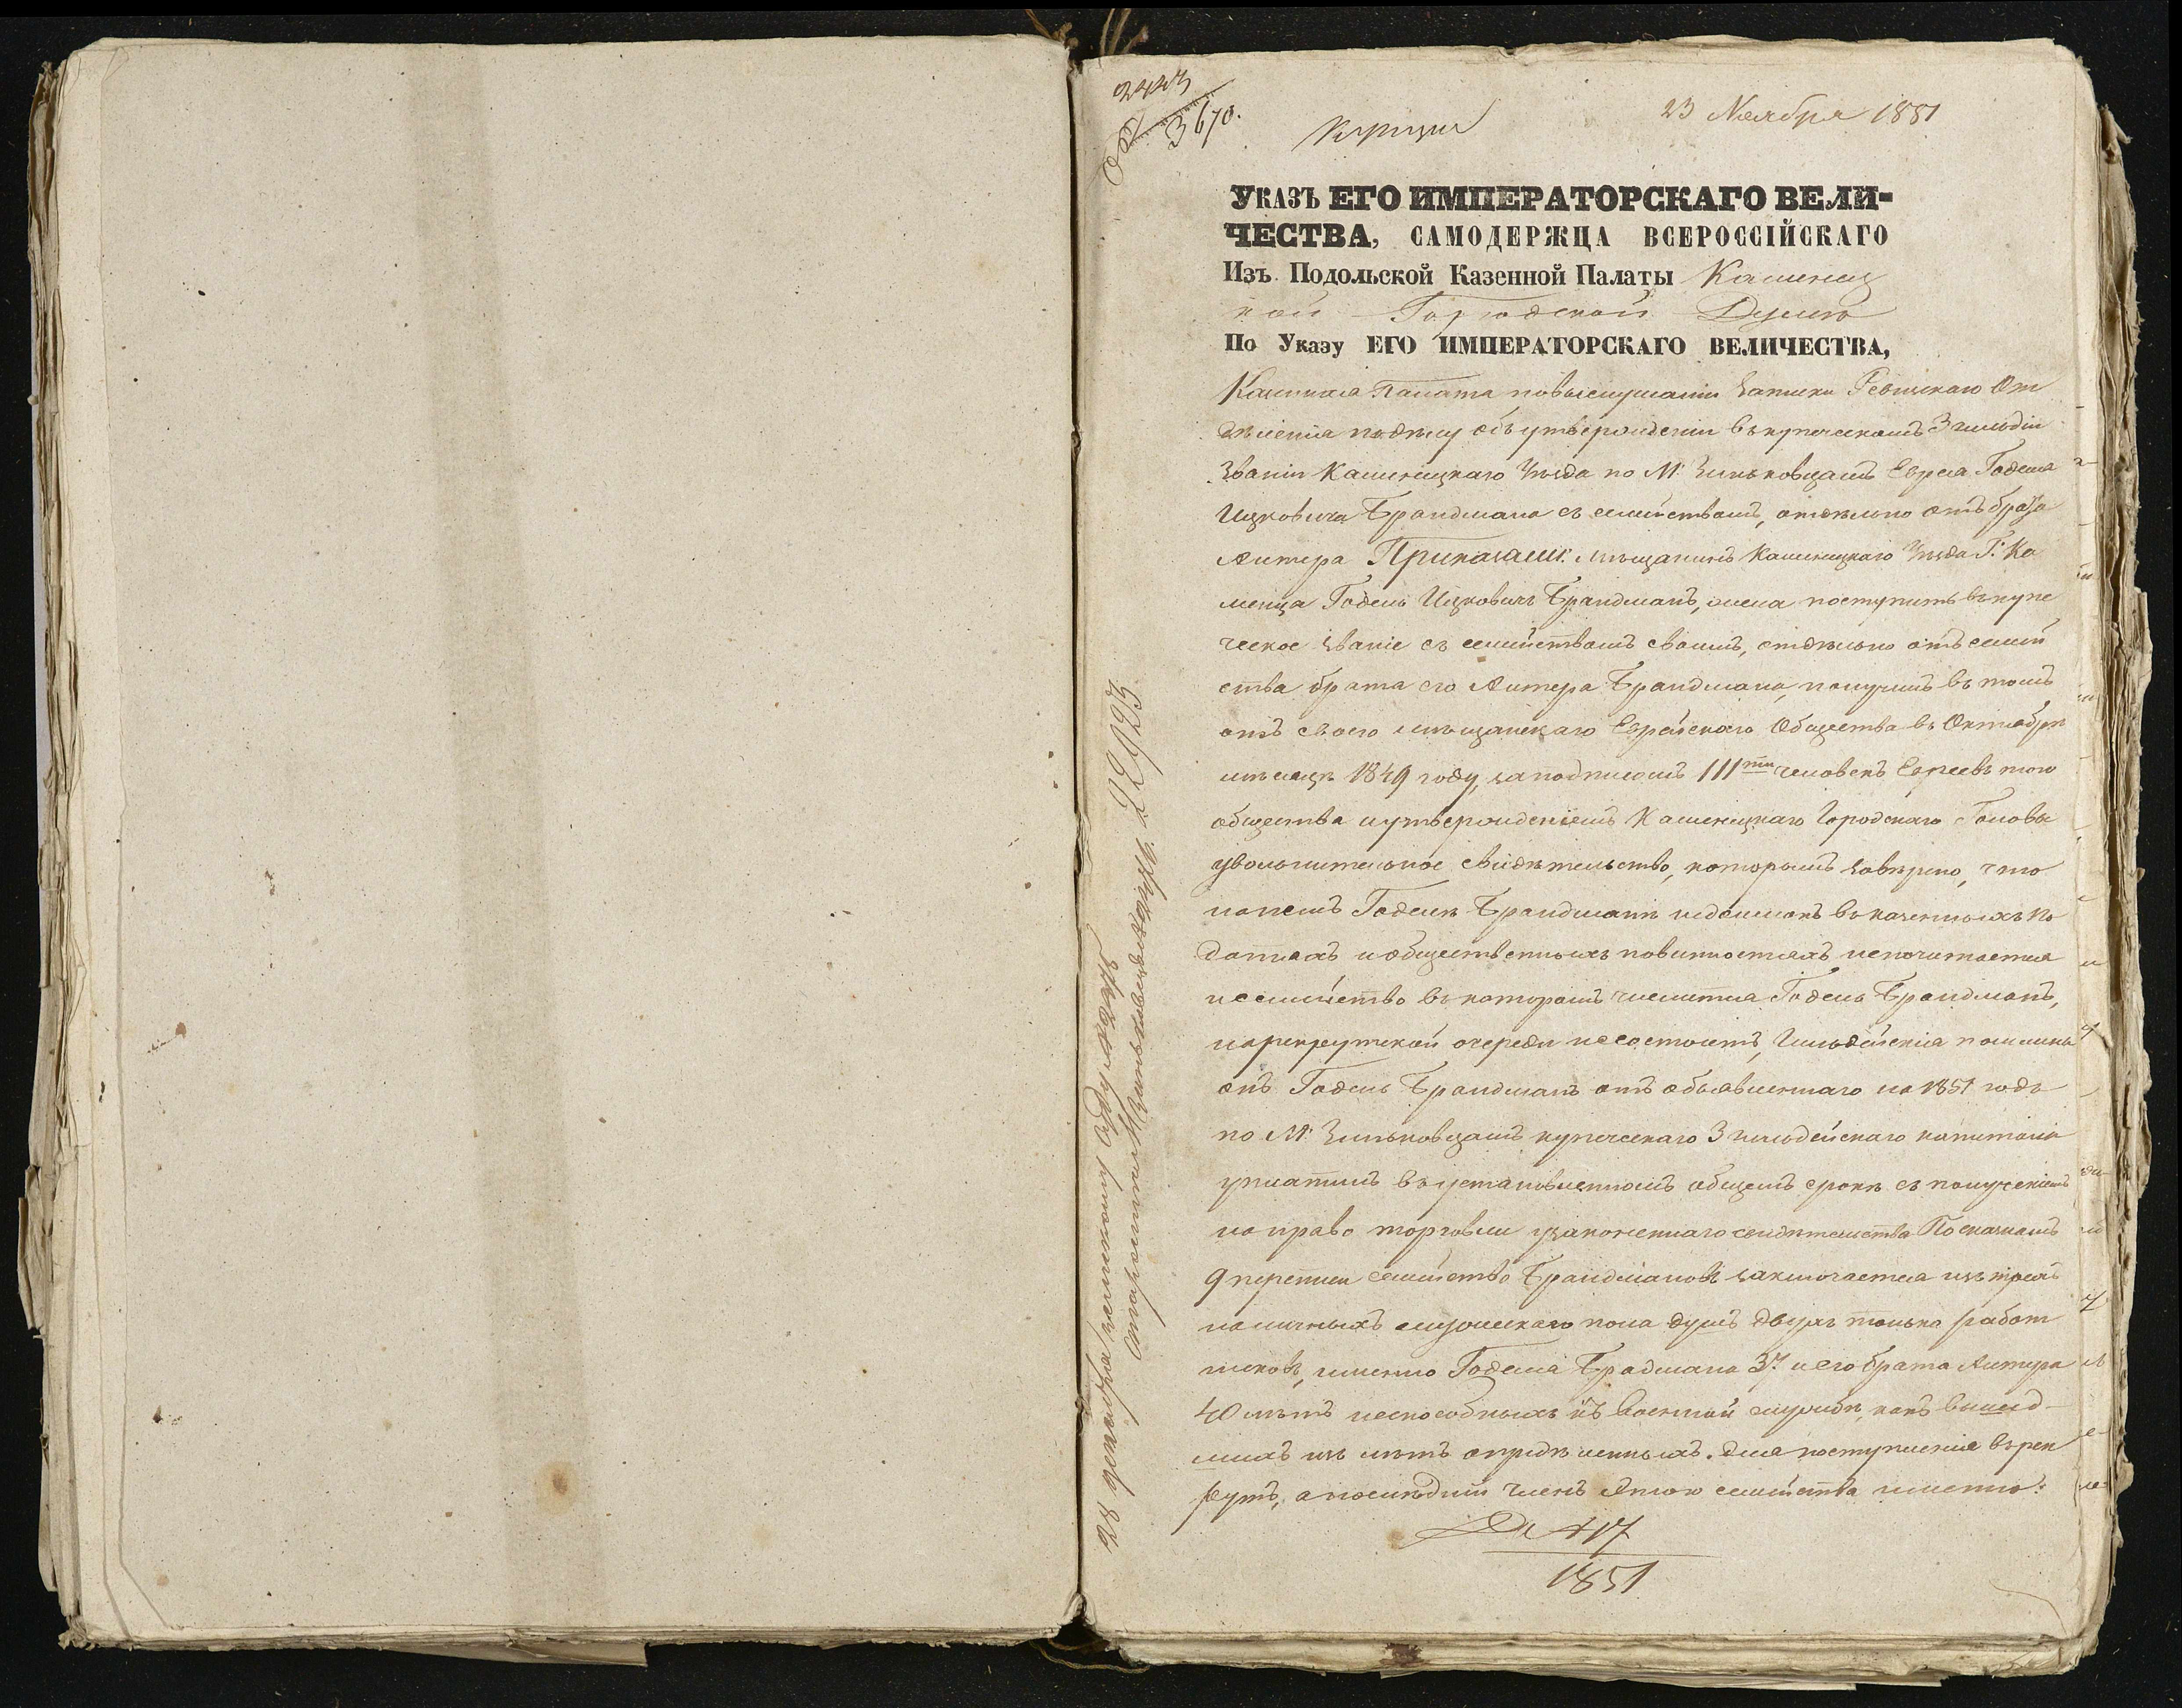 2443
3670.
23 Ноября 1851
Указъ ЕГО ИМПЕРАТОРСКАГО ВЕЛИ-
ЧЕСТВА, САМОДЕРЖЦА ВСЕРОССІЙСКАГО
Изъ Подольской Казенной Палаты Каменец
кой Городской Думѣ
По Указу ЕГО ИМПЕРАТОРСКАГО ВЕЛИЧЕСТВА,
Казенная Палата, по выслушаніи записки Ревизскаго От
дѣленія по дѣлу объ утвержденіи въ купеческомъ 3 гильдіи
званіи Каменецкаго Уѣзда по М. Зиньковцамъ Еврея Годеля
Ицковича Брандмана съ семействомъ, отдѣльно отъ брата
Антера Приказали: мѣщанинъ Каменецкаго Уѣзда Г. Ка
менца Годель Ицковичъ Брандманъ, желая поступить въ купе
ческое званіе съ семействомъ своимъ, отдѣльно отъ семей
ства брата его Антера Брандмана, получилъ въ томъ
отъ своего мѣщанскаго Еврейскаго Общества въ Октябрѣ
мѣсяцѣ 1849 году, за подписомъ 111ти человекъ Евреевъ того
общества и утвержденіемъ Каменецкаго Городскаго Головы
увольнительное свидѣтельство, которымъ завѣрено, что
на немъ Годелѣ Брандманѣ недоимокъ въ казенныхъ по
датяхъ и общественныхъ повинностяхъ не почитается
и семейство въ которомъ числится Годель Брандманъ,
на рекрутской очереди не состоитъ, Гильдейскія пошлины
онъ Годель Брандманъ отъ объявленнаго на 1851 годъ
по М. Зиньковцамъ купеческаго 3 гильдейскаго капитала
уплатилъ въ установленномъ общемъ срокѣ съ полученіемъ
на право торговли узаконеннаго свидѣтельства. По сказкамъ
9 переписи семейство Брандмановъ заключается изъ трехъ
наличныхъ мужескаго пола душъ двухъ только работ
никовъ, именно Годеля Брадмана 37. и его брата Антера
40 лѣтъ неспособныхъ къ военной службѣ, какъ вышед-
шихъ изъ лѣтъ опредѣленныхъ для поступленія въ рек
руты, а послѣдній членъ этого семейства именно:
417
1851
28 декабря
№ 22923